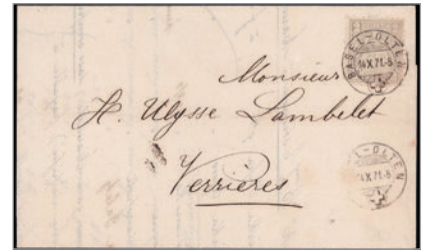 BASEL-OLTEN
14 X 71-5
Monsieur
H. Ulysse Lambelet
Verrières
BASEL-OLTEN
14 X 71-5